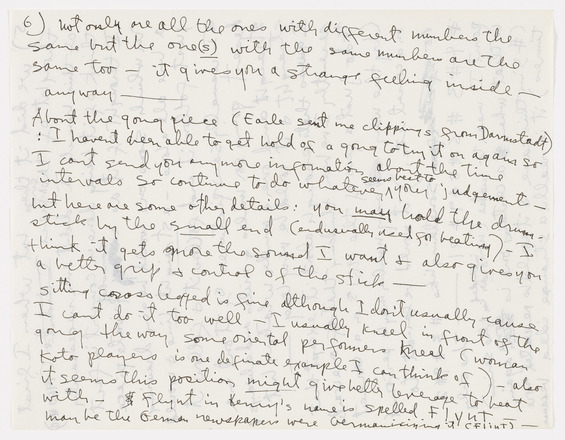 6) not only are all the ones with different numbers the
same but the one(s) with the same numbers are the
same too — it gives you a strange feeling inside —
anyway ———
About the gong piece (Earle sent me clippings from Darmstadt)
: I havent been able to get hold of a gong to try it on again so
I cant send you any more information about the time
intervals so continue to do whatever seems best to your judgement —
but here are some other details: you may hold the drum-
stick by the small end (end usually used for beating) — I
think it gets more the sound I want & also gives you
a better grip & control of the stick ——
sitting cross legged is fine although I don't usually cause
I cant do it too well — I usually kneel in front of the
gong the way some oriental performers kneel (woman
Koto players is one definate example I can think of) — also
it seems this position might give better leverage to beat
with — Flynt in Henry's name is spelled Flynt —
maybe the German newspapers were Germanicizing it (Flint)